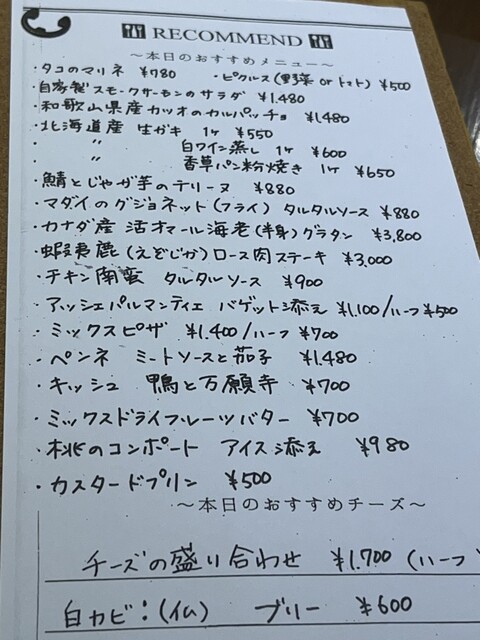 RECOMMEND
～本日のおすすめメニュー～
・タコのマリネ ¥780 ・ピクルス(野菜 or トマト) ¥500
・自家製スモークサーモンのサラダ ¥1.480
・和歌山県産カツオのカルパッチョ ¥1,480
・北海道産 生ガキ 1ケ ¥550
・ 〃 白ワイン蒸し 1ケ ¥600
・ 〃 香草パン粉焼き 1ケ ¥650
・鯖とじゃが芋のテリーヌ ¥880
・マダイのグジョネット(フライ) タルタルソース ¥880
・カナダ産 活オマール海老(半身)グラタン ¥3,800
・蝦夷鹿(えぞじか)ロース肉ステーキ ¥3,000
・チキン南蛮 タルタルソース ¥900
・アッシェパルマンティエ バゲット添え ¥1,100/ハーフ¥500
・ミックスピザ ¥1.400/ハーフ ¥700
・ペンネ ミートソースと茄子 ¥1.480
・キッシュ 鴨と万願寺 ¥700
・ミックスドライフルーツバター ¥700
・桃のコンポート アイス添え ¥980
・カスタードプリン ¥500
～本日のおすすめチーズ～
チーズの盛り合わせ ¥1.700 (ハーフ
白カビ:(仏) ブリー ¥600